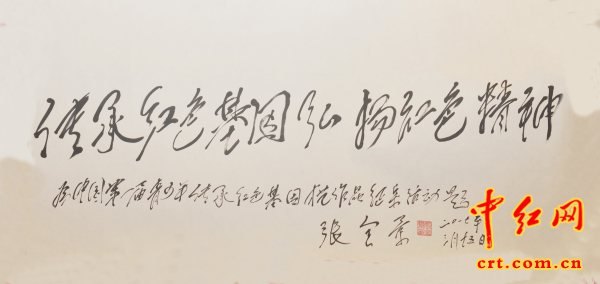 传承红色基因弘扬红色精神
为中国第一届青少年传承红色基因优作品征集活动题
二〇一七年
张全景
月 日
中红网
crt.com.cn